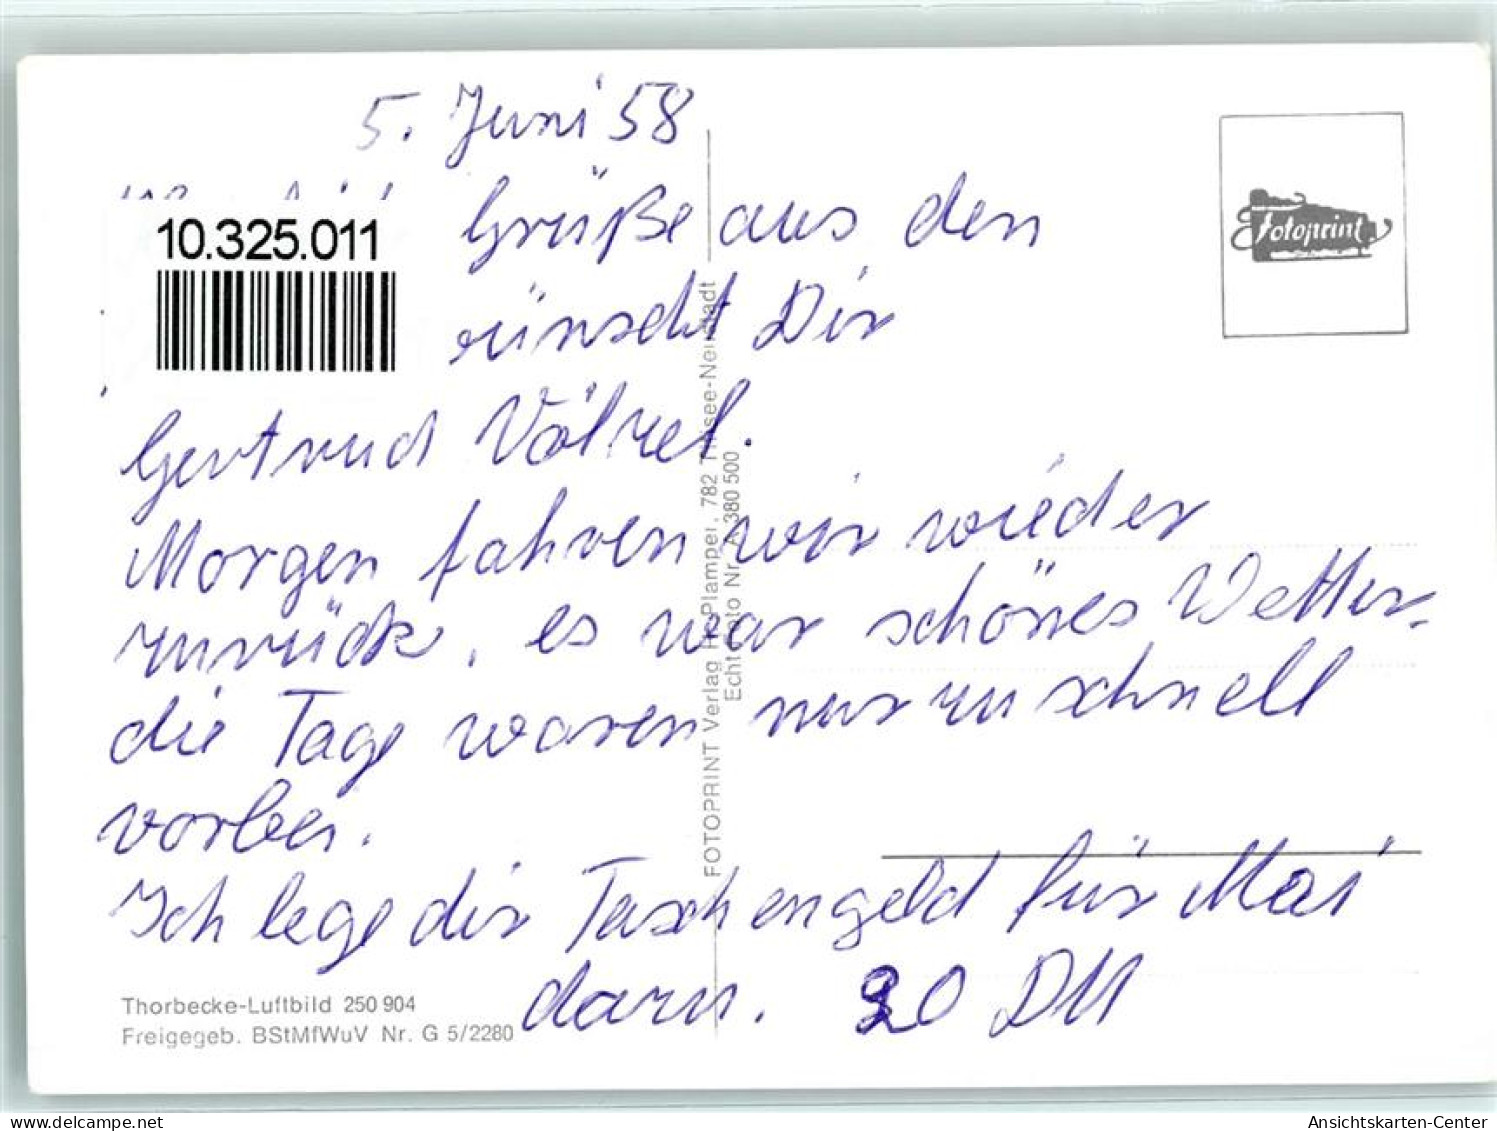 5. Juni 58
Grüße aus den
ünscht Dir
Gertrud Völzel.
Morgen fahren wir wieder
zurück, es war schönes Wetter,
die Tage waren nur zu schnell
vorbei.
Ich lege dir Taschengeld für Mai
darin. 20 DM
10.325.011
fotoprint
FOTOPRINT Verlag H. Plamper, 782 Titisee-Neustadt
Echt Foto Nr. A 380 500
Thorbecke-Luftbild 250 904
Freigegeb. BStMfWuV Nr. G 5/2280
Ansichtskarten-Center